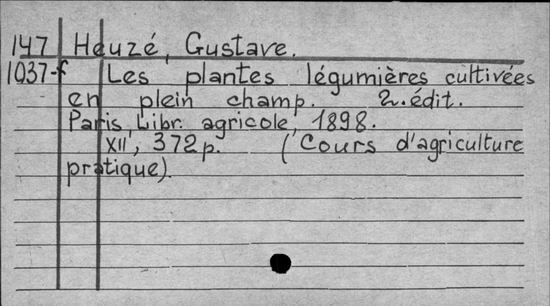 147 Heuzé, Gustave.
1037-f Les plantes légumières cultivées
en plein champ. 2. édit.
Paris, Libr. agricole, 1898.
XII, 372 p. (Cours d'agriculture
pratique).